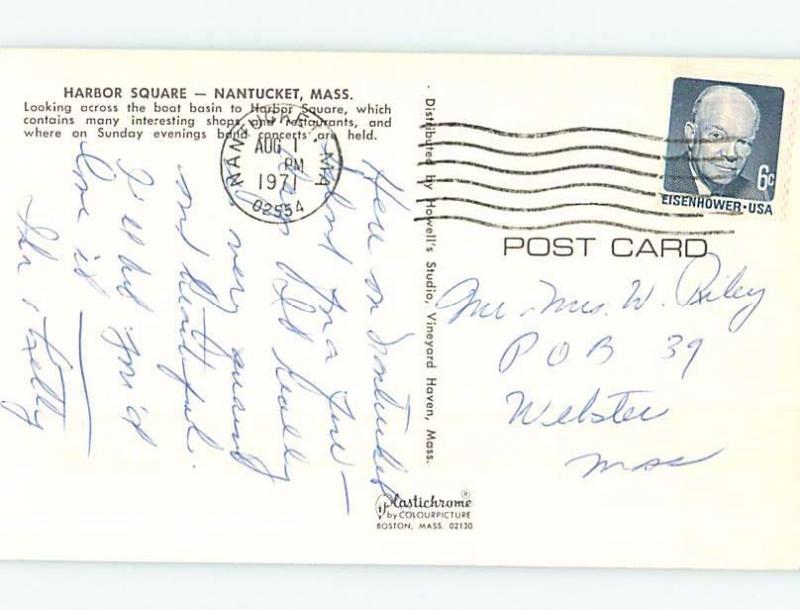 HARBOR SQUARE — NANTUCKET, MASS.
Looking across the boat basin to Harbor Square, which
contains many interesting shops and restaurants, and
where on Sunday evenings band concerts are held.
NANTUCKET, MA
AUG 1
PM
1971
02554
6c
EISENHOWER · USA
POST CARD
Distributed by Howell's Studio, Vineyard Haven, Mass.
Here on Nantucket
for a few —
very sunny
and beautiful.
Love
Mr. Mrs. W. Riley
P O B 39
Webster
Mass
Plastichrome®
by COLOURPICTURE
BOSTON, MASS. 02130